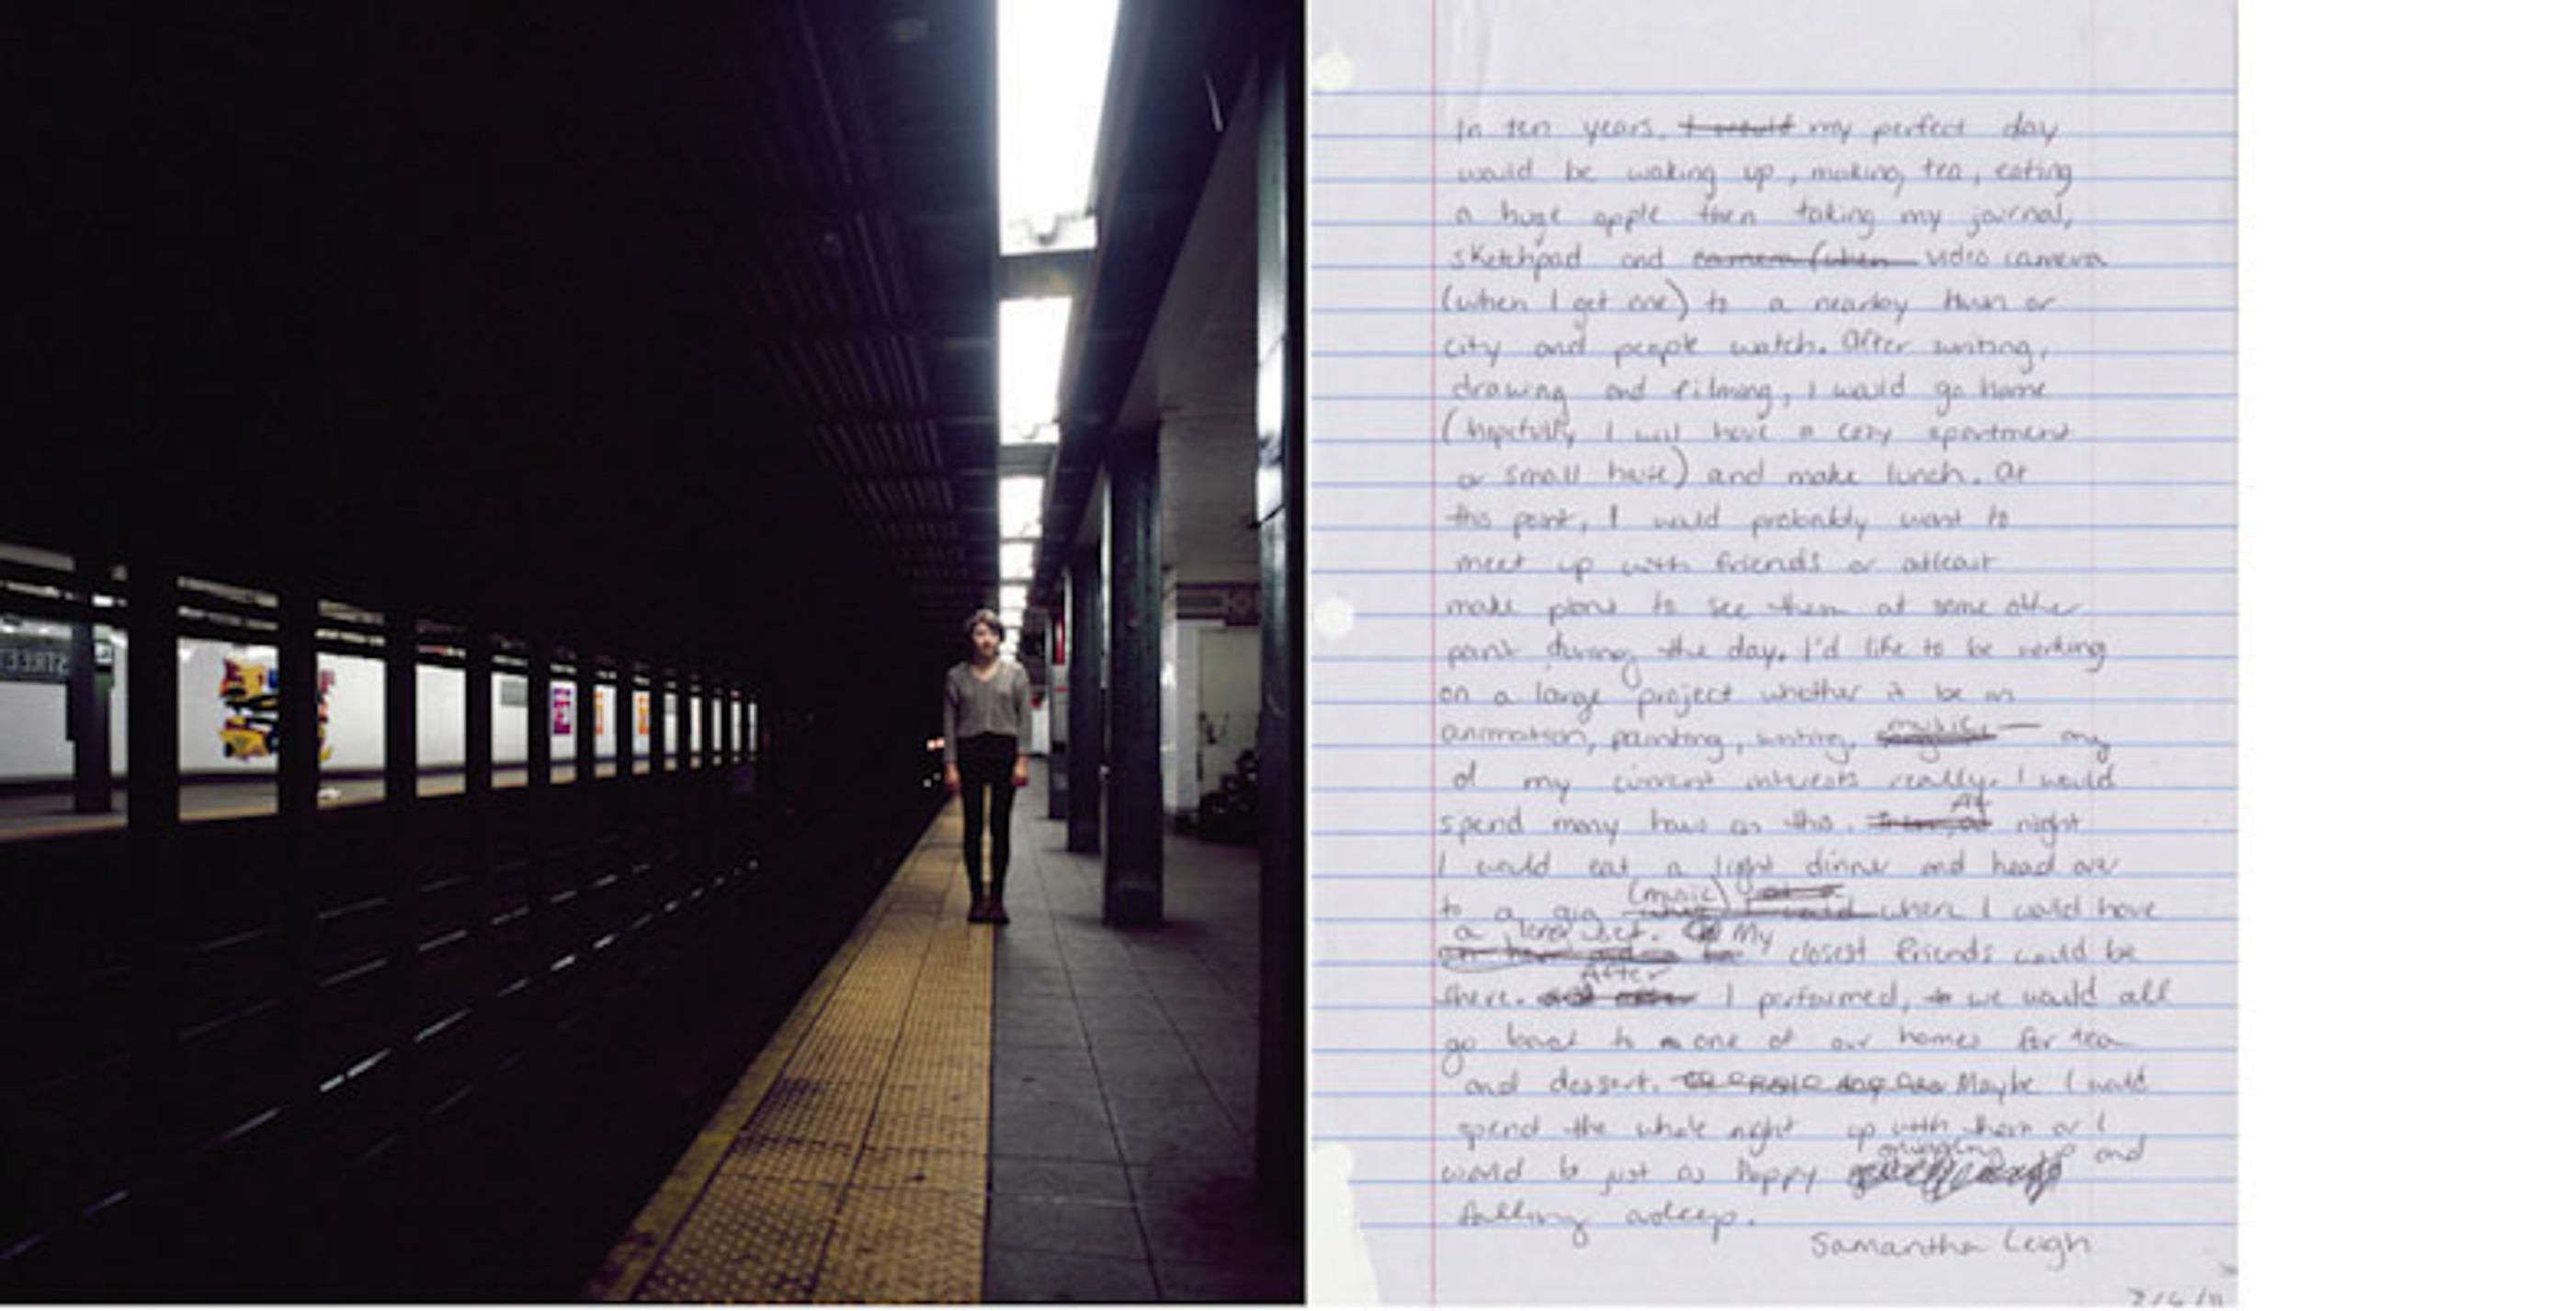 STREET
In ten years, I would my perfect day
would be waking up, making tea, eating
a huge apple then taking my journal,
sketchpad and camera (when video camera
(when I get one) to a nearby town or
city and people watch. After writing,
drawing and filming, I would go home
(hopefully I will have a cozy apartment
or small house) and make lunch. At
this point, I would probably want to
meet up with friends or atleast
make plans to see them at some other
point during the day. I'd like to be working
on a large project whether it be in
animation, painting, writing, music, — any
of my current interests really. I would
spend many hours on this. At night
I would eat a light dinner and head over
to a gig (music) where I would have
a long set. My closest friends would be
there. After I performed, we would all
go back to one of our homes for tea
and dessert. Maybe I would
spend the whole night up with them or I
would be just as happy and
falling asleep.
Samantha Leigh